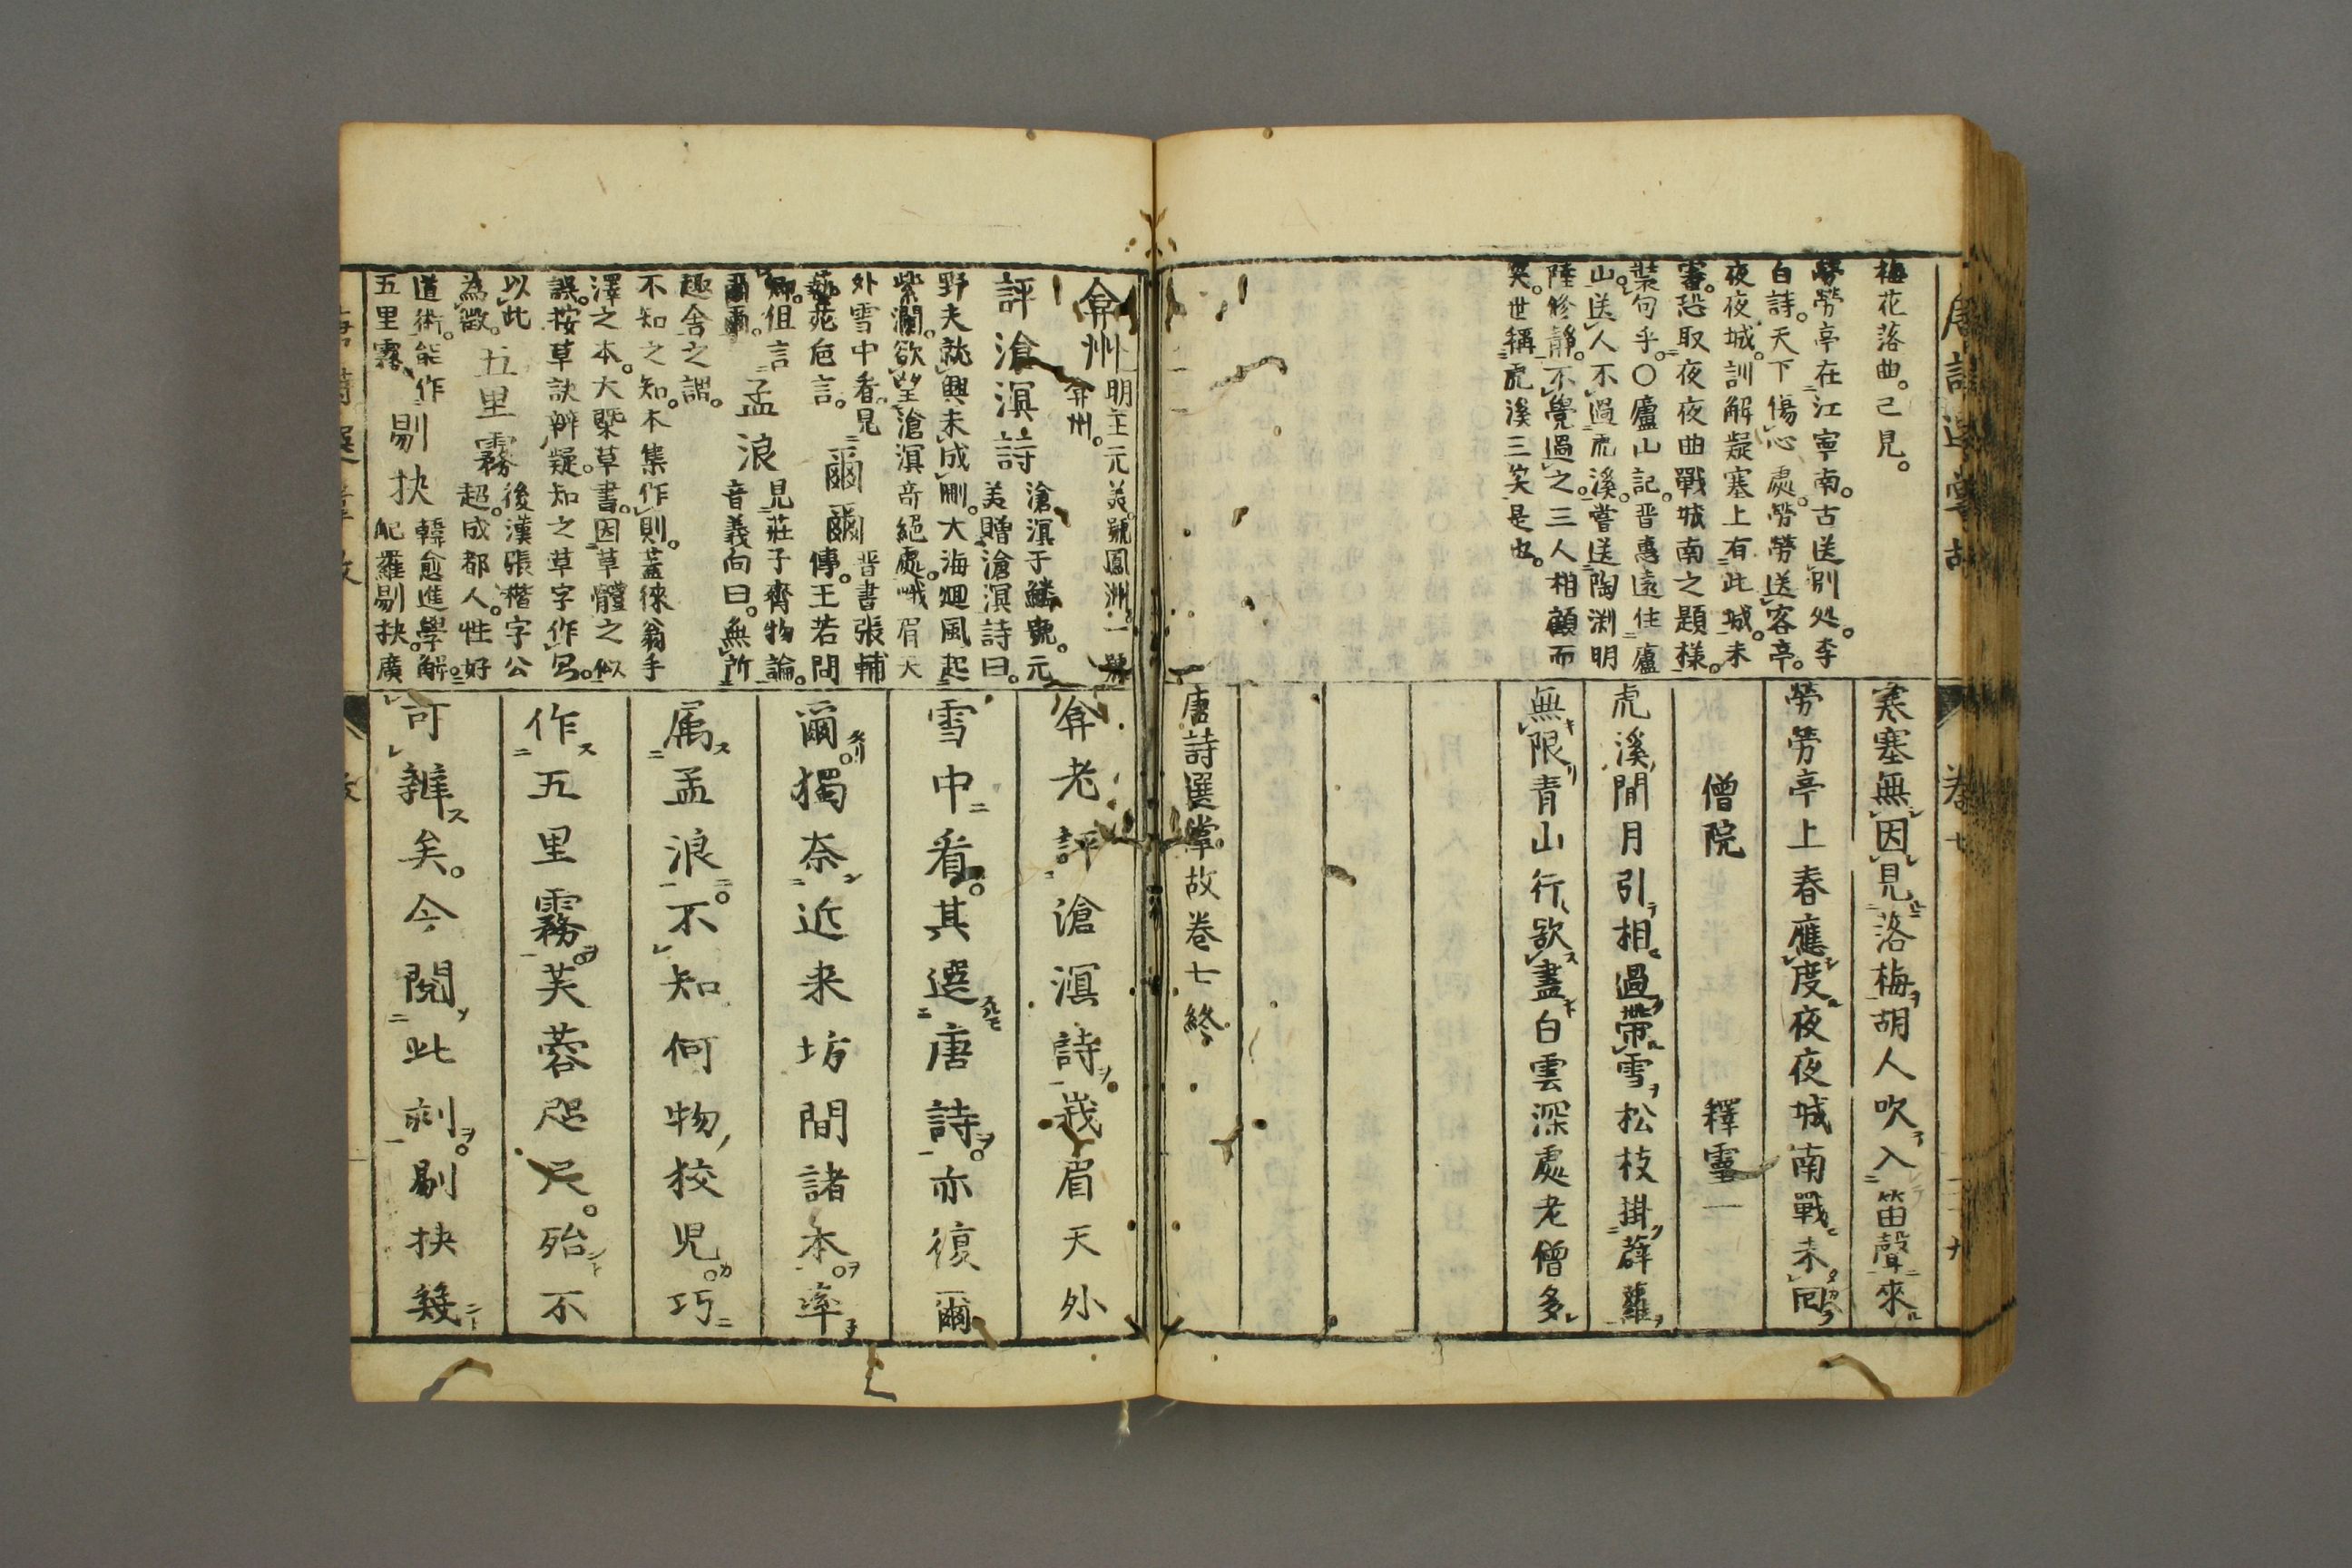 梅花落曲。已見。
勞勞亭在江寧南。古送別処。李
白詩。天下傷心處。勞勞送客亭。
夜夜城。訓解疑塞上有此城。未
審。恐取夜夜曲戰城南之題様。
裝句乎。〇廬山記。晋惠遠住廬
山。送人不過虎溪。嘗送陶渊明
陸修静。不覺過之。三人相顧而
笑。世稱虎溪三笑是也。
寒塞無因見落梅胡人吹入笛聲來
勞勞亭上春應度夜夜城南戰未回
僧院　釋靈一
虎溪閒月引相過帶雪松枝掛薜蘿
無限青山行欲盡白雲深處老僧多
唐詩選掌故卷七終
唐詩選掌故　卷七
弇州明王元美。號鳳洲。一號
弇州。
評滄溟詩滄溟于鱗號。元
美贈滄溟詩曰。
野夫就興未成刪。大海廻風起
紫瀾。欲望滄溟奇絕處。峨眉天
外雪中看。見
藝苑巵言。
爾爾晋書張輔
傳。王若問
卿。但言
爾爾。
孟浪見莊子齊物論。
音義向曰。無所
趣舍之謂。
不知之知。本集作則。蓋徠翁手
澤之本。大槩草書。因草體之似
誤。按草訣辨疑。知之草字作。以此
為徴。
五里霧後漢張楷字公
超。成都人。性好
道術。能作
五里霧。
剔抉韓愈進學解。
爬羅剔抉。廣
弇老評滄溟詩峩眉天外
雪中看。其選唐詩。亦復爾
爾。獨奈近来坊間諸本。率
属孟浪。不知何物狡児。巧
作五里霧。芙蓉咫尺。殆不
可辨矣。今閱此刻。剔抉幾